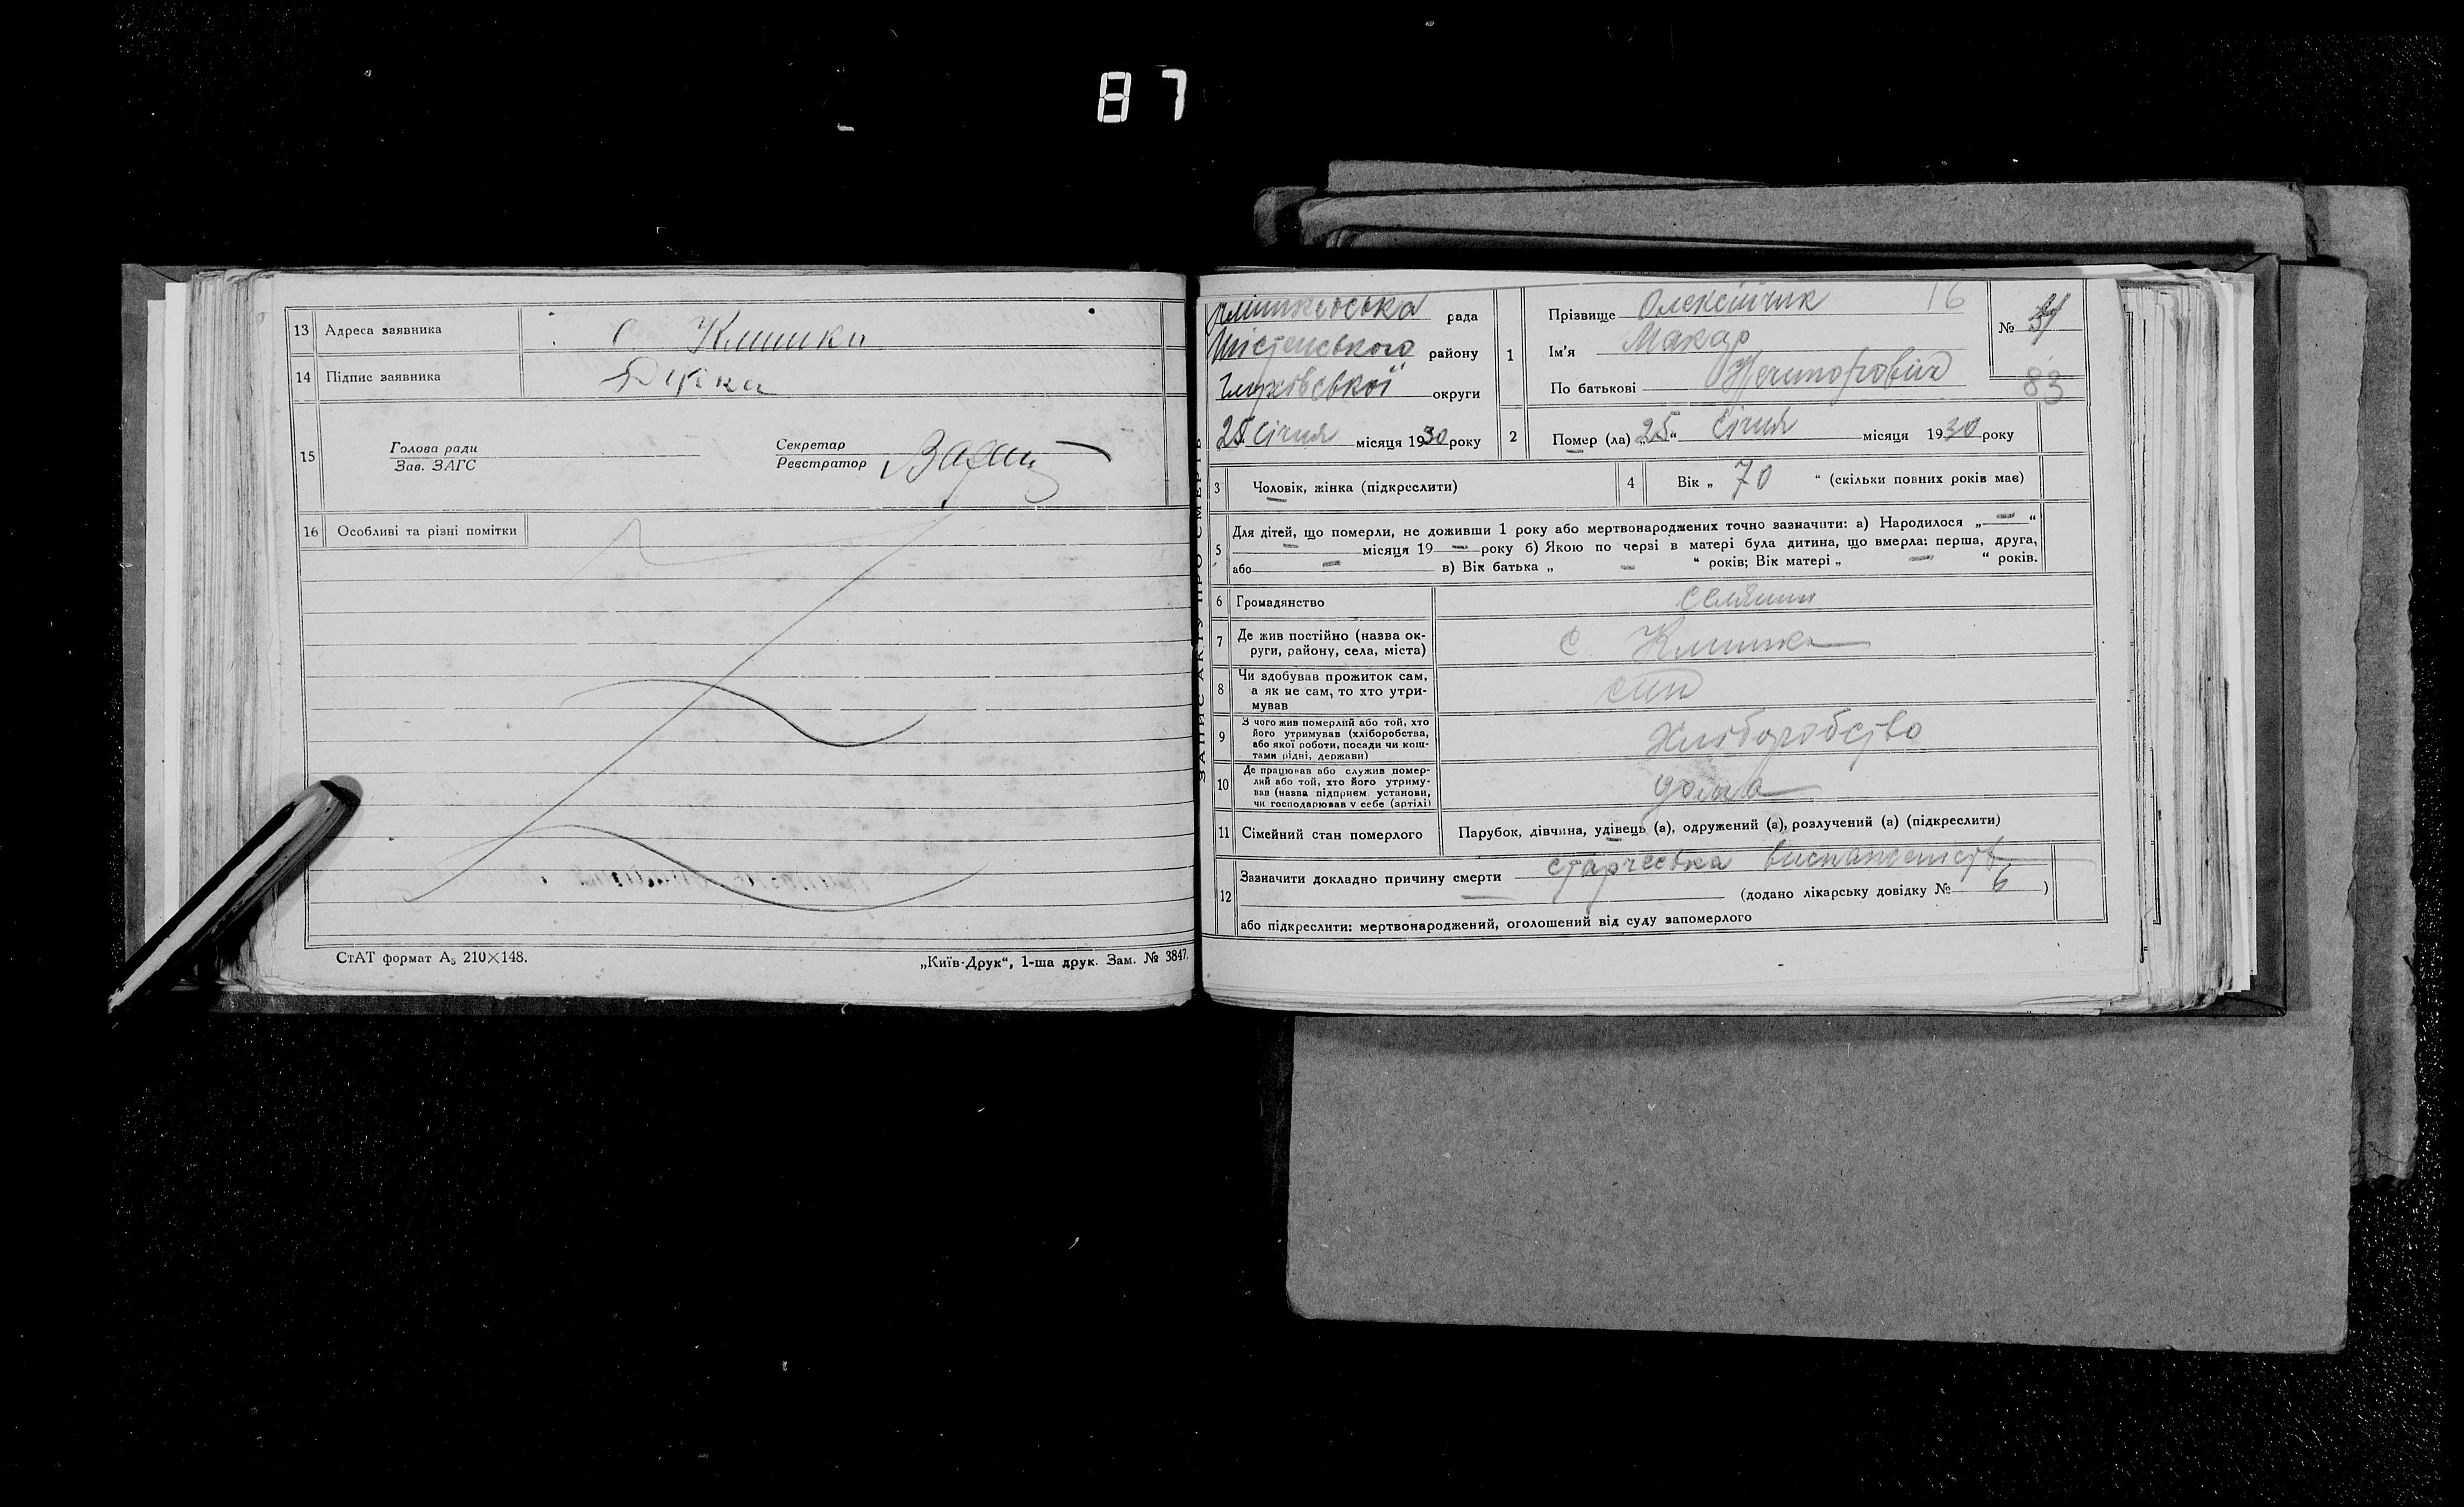 87
13 Адреса заявника с. Клишки
14 Підпис заявника
15 Голова ради
Зав. ЗАГС
Секретар
Реєстратор
16 Особливі та різні помітки
СтАТ формат А5 210×148.
„Київ-Друк“, 1-ша друк. Зам. № 3847.
ЗАПИС АКТУ ПРО СМЕРТЬ
Клишківська рада
району
Глухівської округи
25 січня місяця 1930 року
1 Прізвище Олексійчик 16
Ім'я Макар
По батькові Нечипорович
№
83
2 Помер (ла) „25“ січня місяця 1930 року
3 Чоловік, жінка (підкреслити)
4 Вік „ 70 “ (скільки повних років має)
5 Для дітей, що померли, не доживши 1 року або мертвонароджених точно зазначити: а) Народилося „—“
— місяця 19 — року б) Якою по черзі в матері була дитина, що вмерла: перша, друга,
або — в) Вік батька „ — “ років; Вік матері „ — “ років.
6 Громадянство селянин
7 Де жив постійно (назва ок-
руги, району, села, міста) с Клишки
8 Чи здобував прожиток сам,
а як не сам, то хто утри-
мував
9 З чого жив померлий або той, хто
його утримував (хліборобства,
або якої роботи, посади чи кош-
тами рідні, держави) Хліборобство
10 Де працював або служив помер-
лий або той, хто його утриму-
вав (назва підприєм. установи,
чи господарював у себе (артілі) дома
11 Сімейний стан померлого Парубок, дівчина, удівець (а), одружений (а), розлучений (а) (підкреслити)
12 Зазначити докладно причину смерти старческа
(додано лікарську довідку № 6 )
або підкреслити: мертвонароджений, оголошений від суду запомерлого